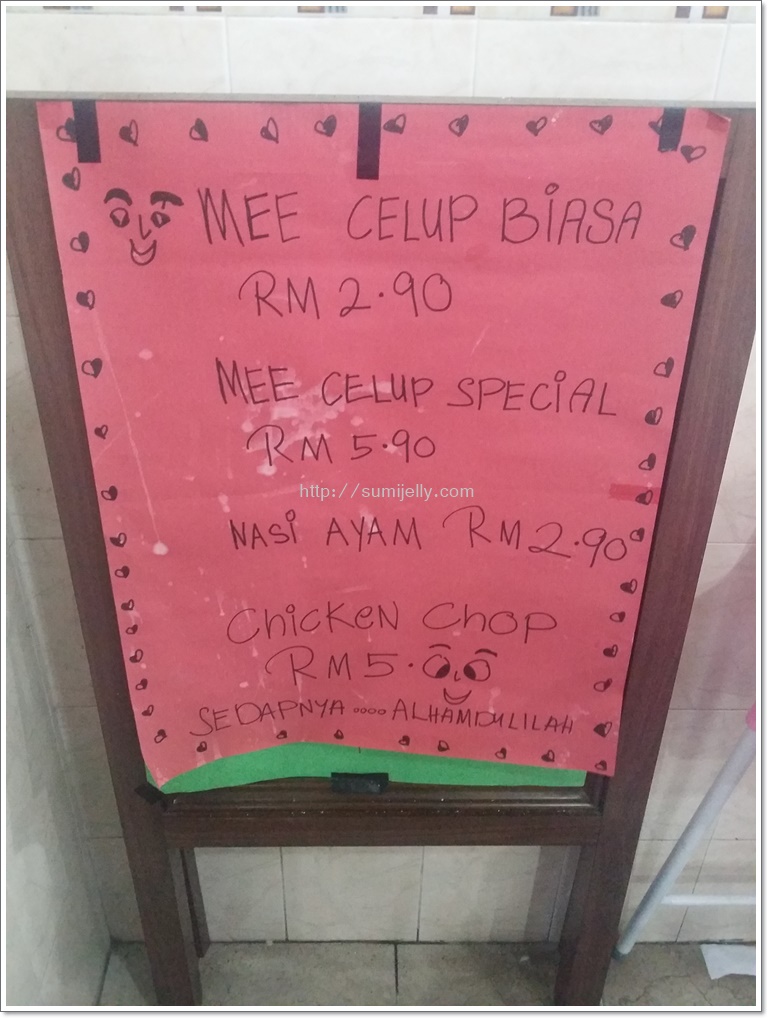 MEE CELUP BiASA
RM 2.90
MEE CELUP SPECiAL
RM 5.90
http://sumijelly.com
NASi AYAM RM2.90
ChickeN Chop
RM5.00
SEDAPNYA .... ALHAMDULILAH